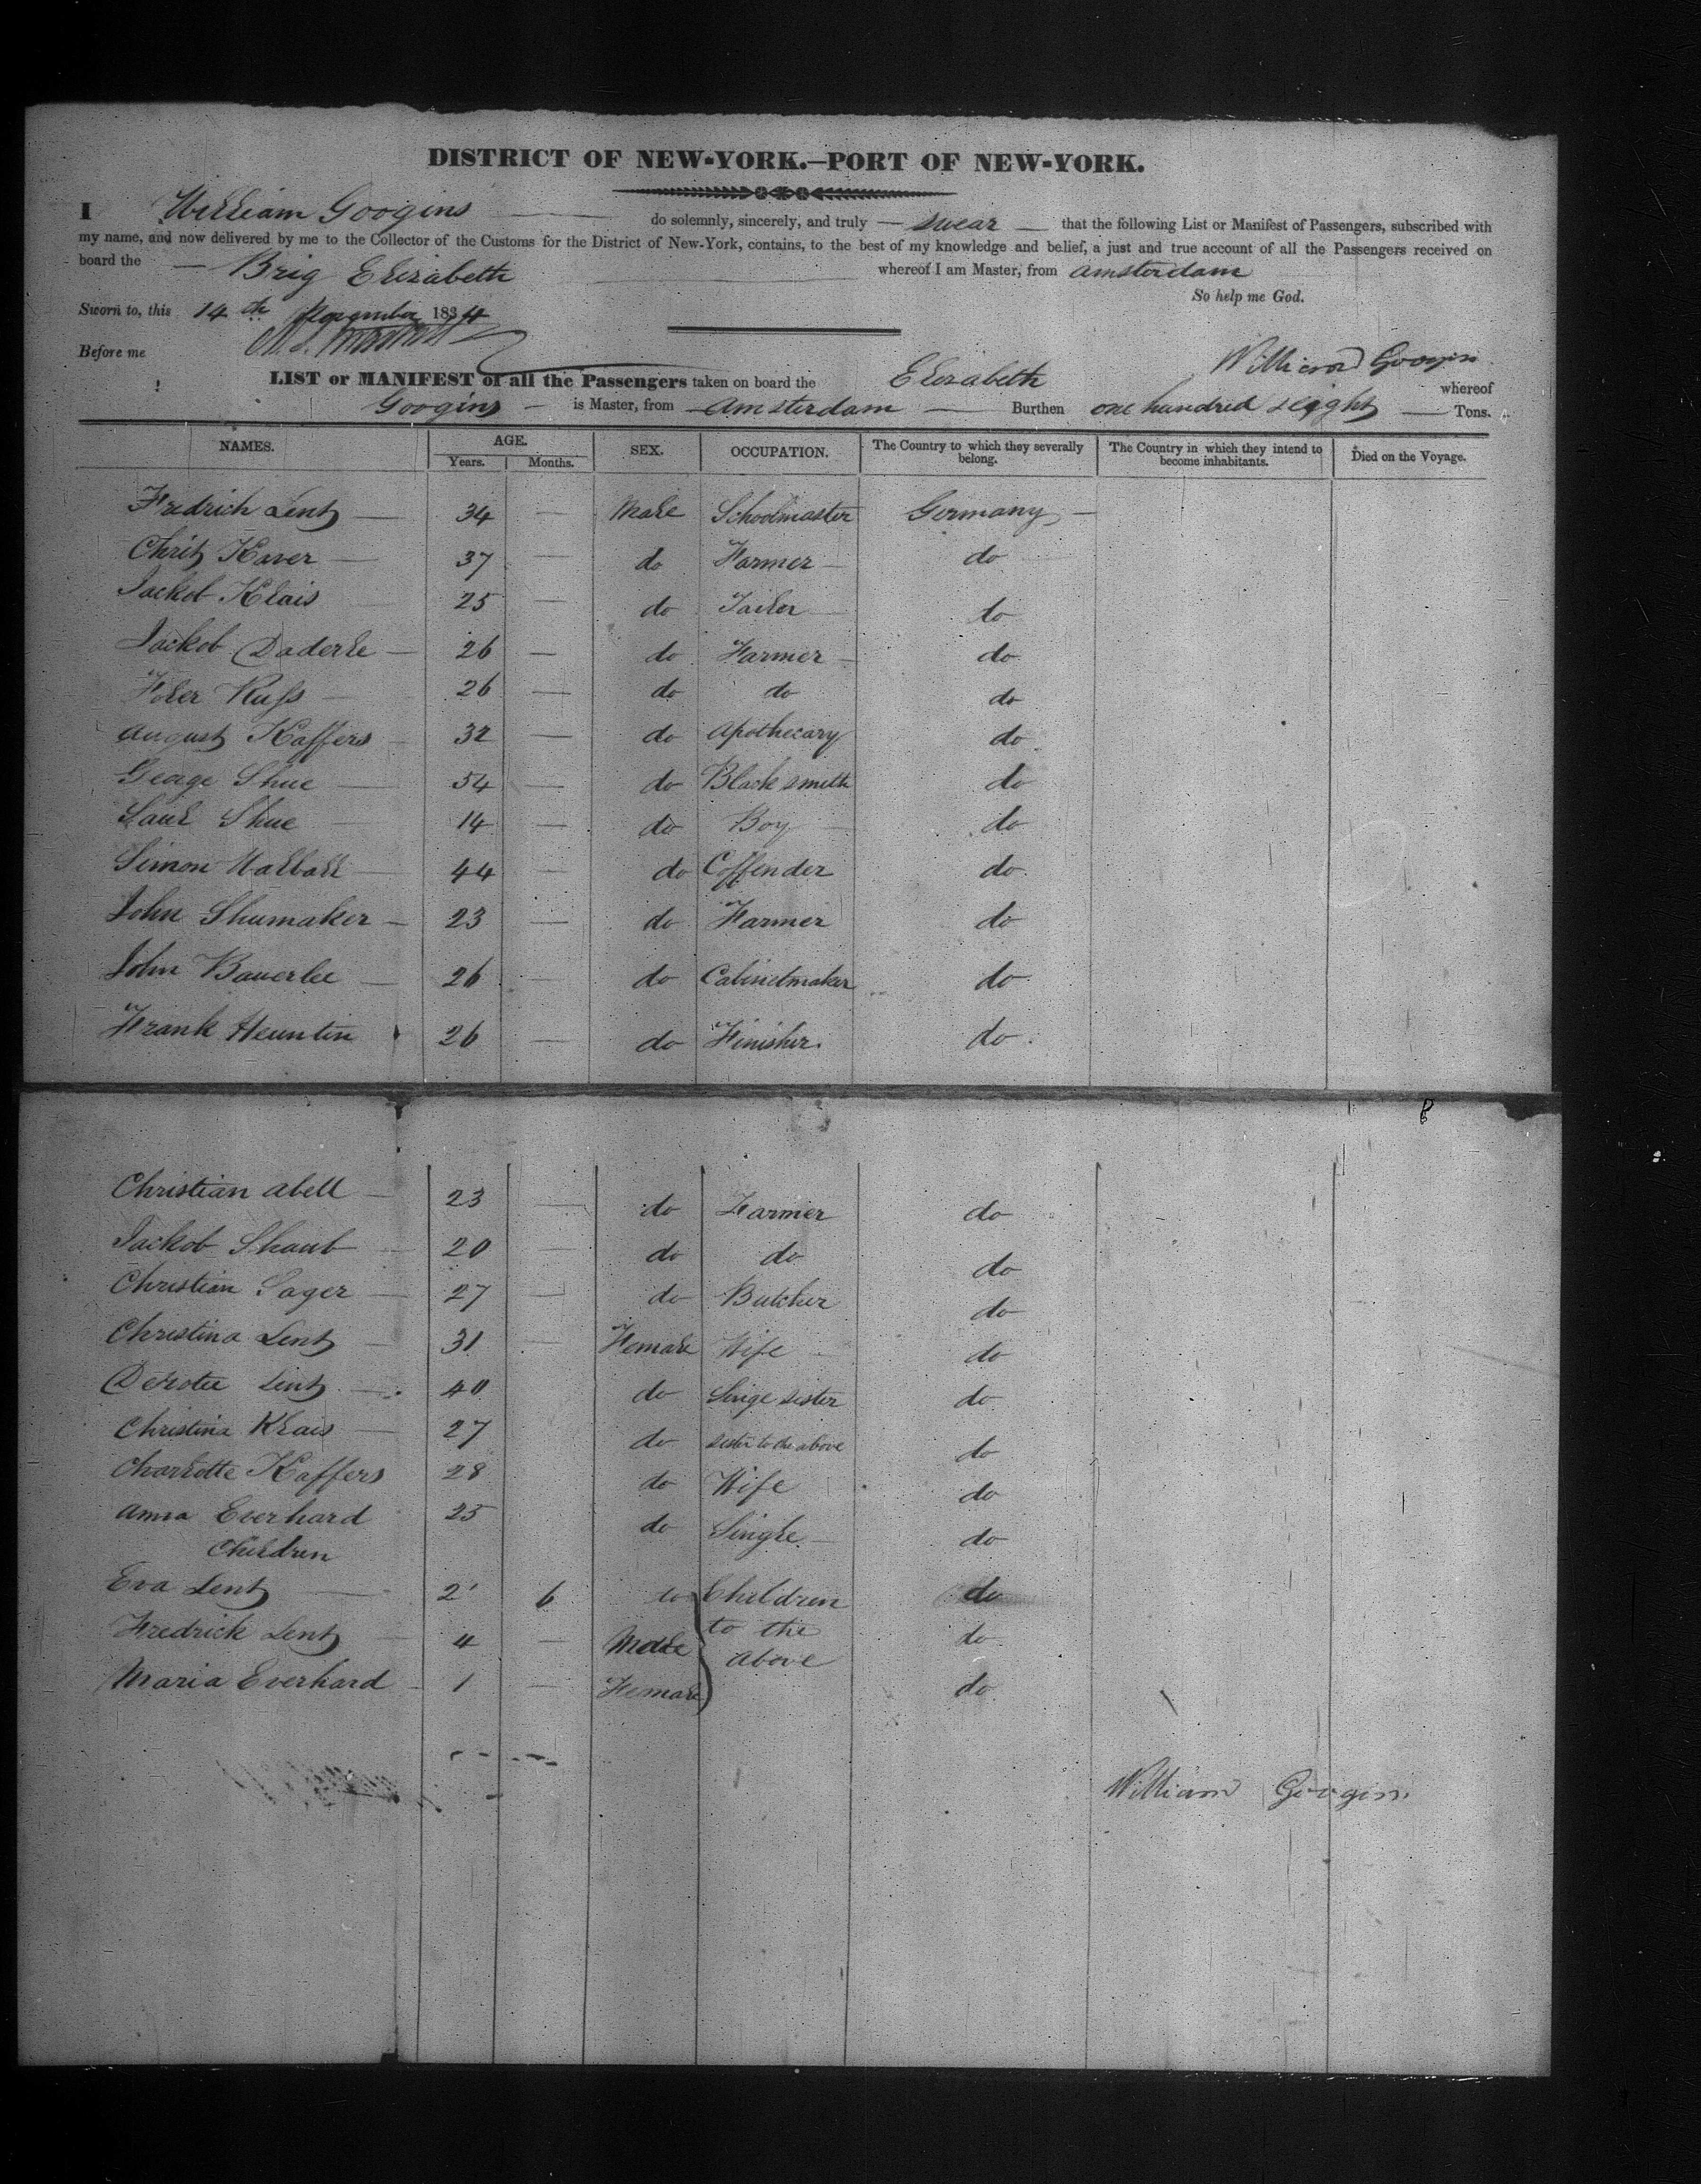 DISTRICT OF NEW-YORK.—PORT OF NEW-YORK.
I William Googins — do solemnly, sincerely, and truly — swear — that the following List or Manifest of Passengers, subscribed with
my name, and now delivered by me to the Collector of the Customs for the District of New-York, contains, to the best of my knowledge and belief, a just and true account of all the Passengers received on
board the — Brig Elizabeth whereof I am Master, from Amsterdam
So help me God.
Sworn to, this 14th 1834
Before me
William Googin
LIST or MANIFEST of all the Passengers taken on board the Elizabeth whereof
Googins — is Master, from — Amsterdam — Burthen one hundred & eight — Tons.
NAMES. AGE. SEX. OCCUPATION. The Country to which they severally belong. The Country in which they intend to become inhabitants. Died on the Voyage.
Years. Months.
Fredrich Lentz — 34 — Male Schoolmaster Germany —
Chritz Kaver — 37 — do Farmer — do
Jackob Klais 25 — do Tailor do
Jackob Daderle — 26 — do Farmer — do
Russ — 26 — do do do
August Kaffers — 32 — do Apothecary do
George Shue — 54 — do Black smith do
Shue — 14 — do Boy — do
Simon — 44 — do Coffender do
John Shumaker — 23 — do Farmer do
John Bauerlee — 26 — do Cabinetmaker do
Frank Heuntin 26 — do Finisher. do
Christian Abell — 23 — do Farmer do
Jackob Shaub — 20 — do do do
Christian Sager — 27 — do Butcher do
Christina Lentz — 31 — Female Wife — do
Lentz — 40 do Singe sister do
Christina Klais — 27 do sister to the above do
Charlotte Kaffers 28 do Wife do
Anna Everhard 25 do Single — do
Children
Eva Lentz — 2 6 do Children do
Fredrick Lentz — 4 — Male to the do
Maria Everhard — 1 — Female above do
William Googin